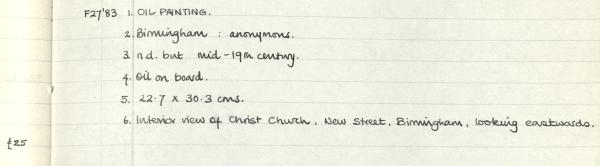 F27'83 1. OIL PAINTING.
2. Birmingham : anonymous.
3. n.d. but mid-19th century.
4. Oil on board.
5. 22.7 x 30.3 cms.
6. Interior view of Christ Church, New Street, Birmingham, looking eastwards.
£25